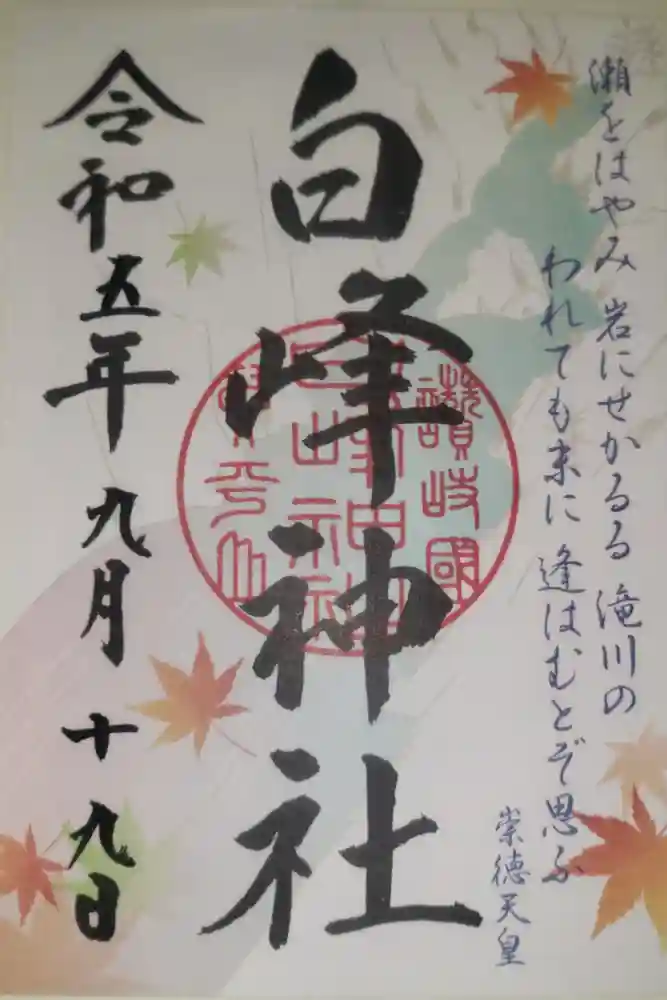 瀬をはやみ 岩にせかるる 滝川の
われても末に 逢はむとぞ思ふ
崇徳天皇
白峰神社
讃岐國
令和五年九月十九日